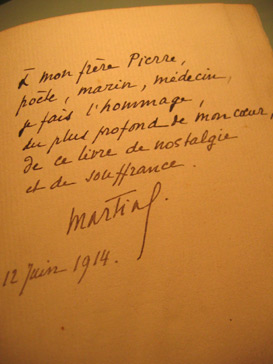 À mon frère Pierre,
poète, marin, médecin,
je fais l'hommage,
du plus profond de mon cœur,
de ce livre de nostalgie
et de souffrance.
Martial.
12 Juin 1914.